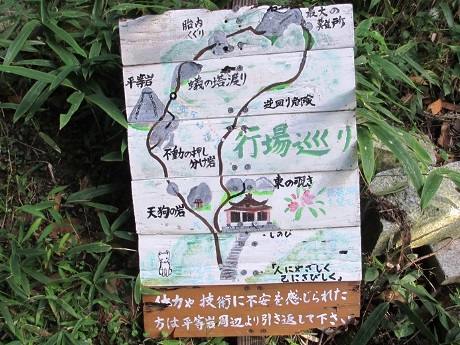 胎内
くぐり
最大の
難所
平等岩
蟻の塔渡り
逆回り危険
不動の押し
分け岩
行場巡り
東の覗き
天狗の岩
しのび
「人にやさしく
己にきびしく」
体力や技術に不安を感じられた
方は平等岩周辺より引き返して下さい